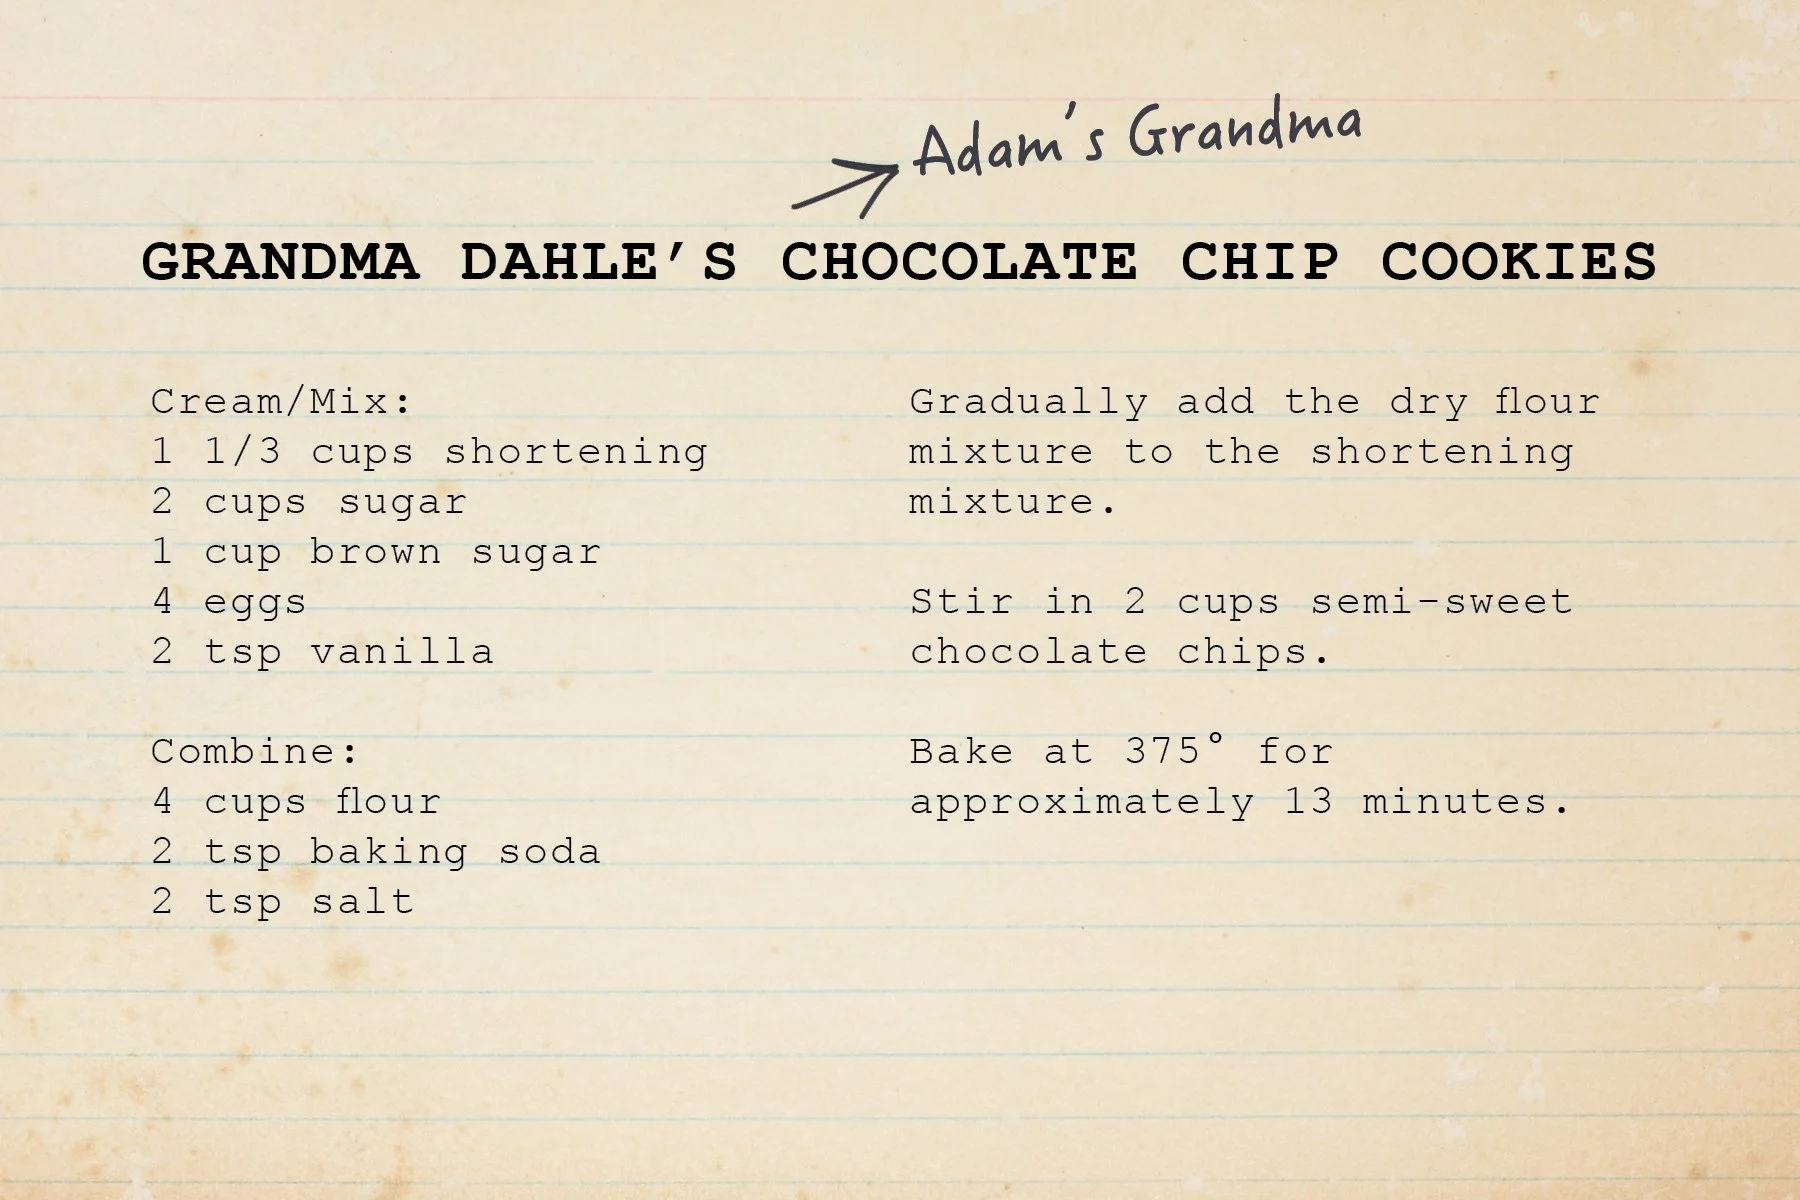 Adam's Grandma
GRANDMA DAHLE'S CHOCOLATE CHIP COOKIES
Cream/Mix:
1 1/3 cups shortening
2 cups sugar
1 cup brown sugar
4 eggs
2 tsp vanilla
Combine:
4 cups flour
2 tsp baking soda
2 tsp salt
Gradually add the dry flour
mixture to the shortening
mixture.
Stir in 2 cups semi-sweet
chocolate chips.
Bake at 375° for
approximately 13 minutes.